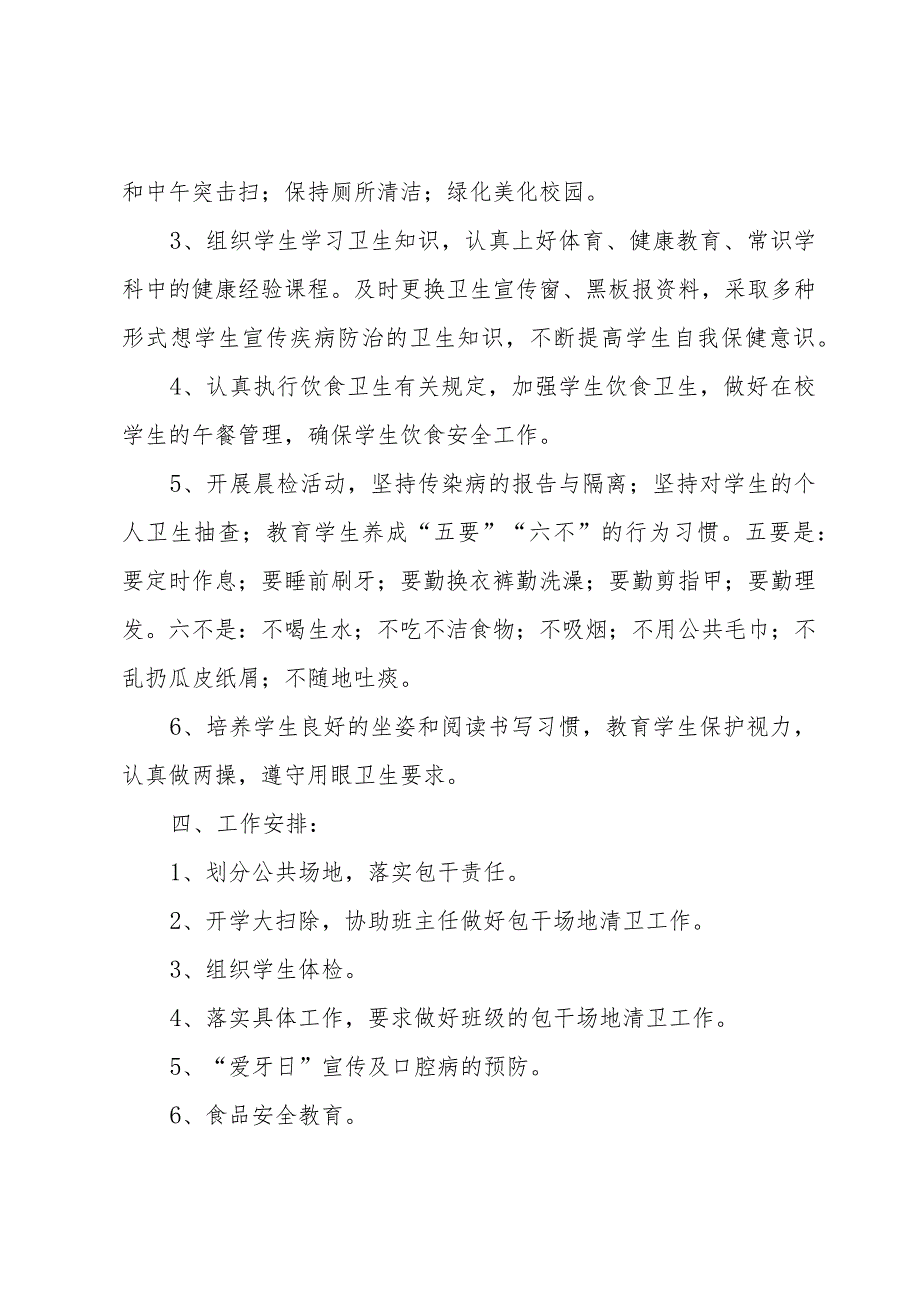 和中午突击扫；保持厕所清洁；绿化美化校园。
3、组织学生学习卫生知识，认真上好体育、健康教育、常识学
科中的健康经验课程。及时更换卫生宣传窗、黑板报资料，采取多种
形式想学生宣传疾病防治的卫生知识，不断提高学生自我保健意识。
4、认真执行饮食卫生有关规定，加强学生饮食卫生，做好在校
学生的午餐管理，确保学生饮食安全工作。
5、开展晨检活动，坚持传染病的报告与隔离；坚持对学生的个
人卫生抽查；教育学生养成“五要”“六不”的行为习惯。五要是：
要定时作息；要睡前刷牙；要勤换衣裤勤洗澡；要勤剪指甲；要勤理
发。六不是：不喝生水；不吃不洁食物；不吸烟；不用公共毛巾；不
乱扔瓜皮纸屑；不随地吐痰。
6、培养学生良好的坐姿和阅读书写习惯，教育学生保护视力，
认真做两操，遵守用眼卫生要求。
四、工作安排：
1、划分公共场地，落实包干责任。
2、开学大扫除，协助班主任做好包干场地清卫工作。
3、组织学生体检。
4、落实具体工作，要求做好班级的包干场地清卫工作。
5、“爱牙日”宣传及口腔病的预防。
6、食品安全教育。